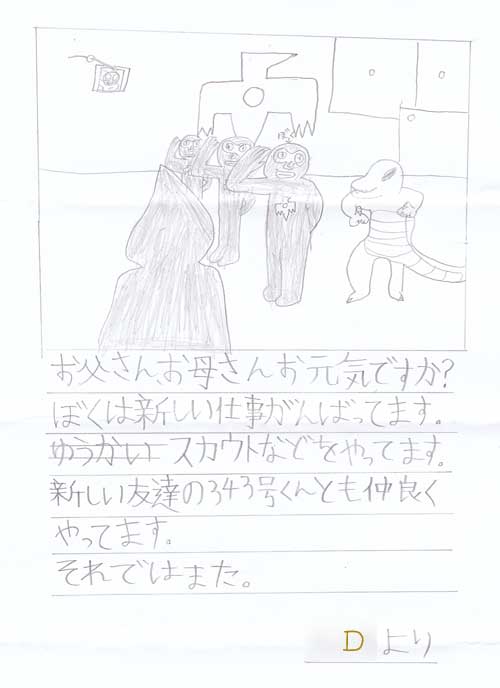 お父さん、お母さんお元気ですか?
ぼくは新しい仕事がんばってます。
ゆうかい スカウトなどをやってます。
新しい友達の343号くんとも仲良く
やってます。
それではまた。
D より